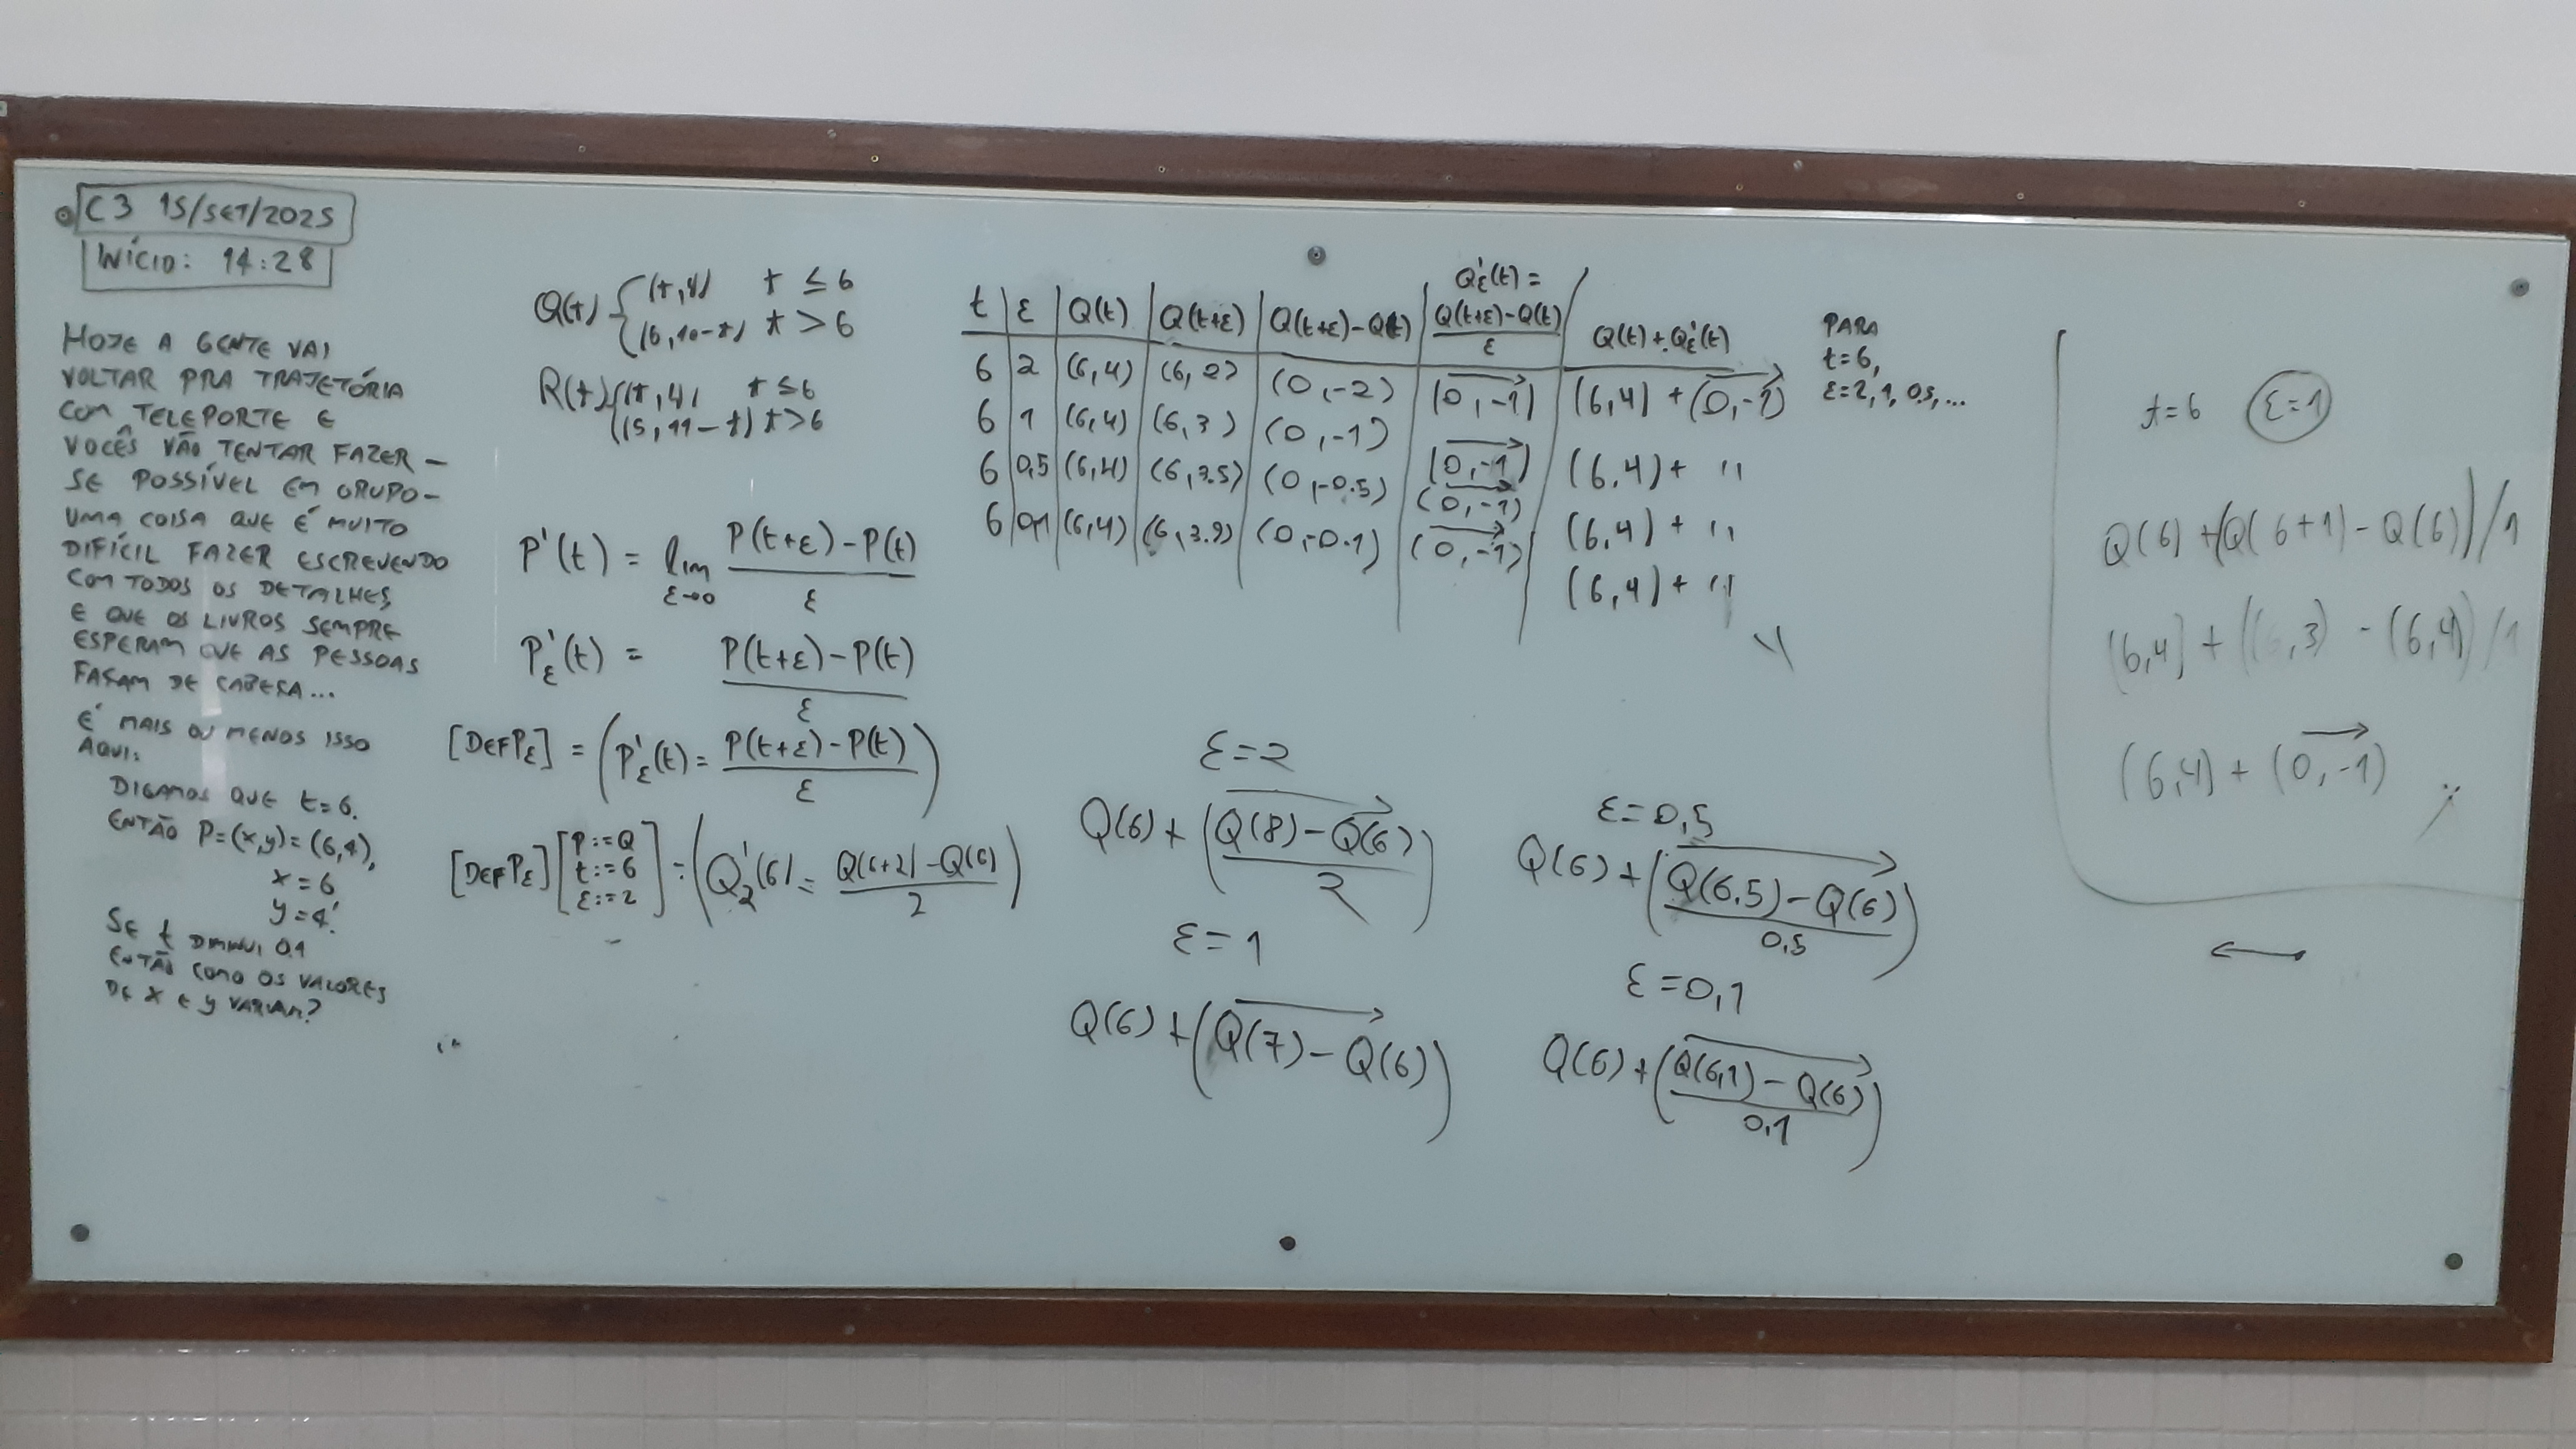 C3 15/SET/2025
INÍCIO: 14:28
HOJE A GENTE VAI
VOLTAR PRA TRAJETÓRIA
COM TELEPORTE E
VOCÊS VÃO TENTAR FAZER –
SE POSSÍVEL EM GRUPO –
UMA COISA QUE É MUITO
DIFÍCIL FAZER ESCREVENDO
COM TODOS OS DETALHES,
E QUE OS LIVROS SEMPRE
ESPERAM QUE AS PESSOAS
FAÇAM DE CABEÇA...
É MAIS OU MENOS ISSO
AQUI:
DIGAMOS QUE t=6.
ENTÃO P=(x,y)=(6,4),
x=6
y=4.
SE t DIMINUI 0.1
ENTÃO COMO OS VALORES
DE x E y VARIAM?
Q(t) { (t,4) t ≤ 6
(6,10-t) t > 6
R(t) { (t,4), t ≤ 6
(5,11-t) t > 6
P'(t) = lim ε→0 (P(t+ε)-P(t))/ε
P'ε(t) = (P(t+ε)-P(t))/ε
[DEFPε] = (P'ε(t) = (P(t+ε)-P(t))/ε)
[DEFPε] [P:=Q t:=6 ε:=2] = (Q'2(6) = (Q(6+2)-Q(6))/2)
t | ε | Q(t) | Q(t+ε) | Q(t+ε)-Q(t) | Q'ε(t) = (Q(t+ε)-Q(t))/ε | Q(t)+Q'ε(t)
6 | 2 | (6,4) | (6,2) | (0,-2) | (0,-1) | (6,4)+(0,-1)
6 | 1 | (6,4) | (6,3) | (0,-1) | (0,-1) | (6,4)+ "
6 | 0,5 | (6,4) | (6,3.5) | (0,-0.5) | (0,-1) | (6,4)+ "
6 | 0,1 | (6,4) | (6,3.9) | (0,-0.1) | (0,-1) | (6,4)+ "
PARA
t=6,
ε=2, 1, 0.5, ...
ε=2
Q(6)+((Q(8)-Q(6))/2)
ε=1
Q(6)+(Q(7)-Q(6))
ε=0,5
Q(6)+((Q(6.5)-Q(6))/0,5)
ε=0,1
Q(6)+((Q(6,1)-Q(6))/0,1)
t=6 ε=1
Q(6)+(Q(6+1)-Q(6))/1
(6,4)+((6,3)-(6,4))/1
(6,4)+(0,-1)
←